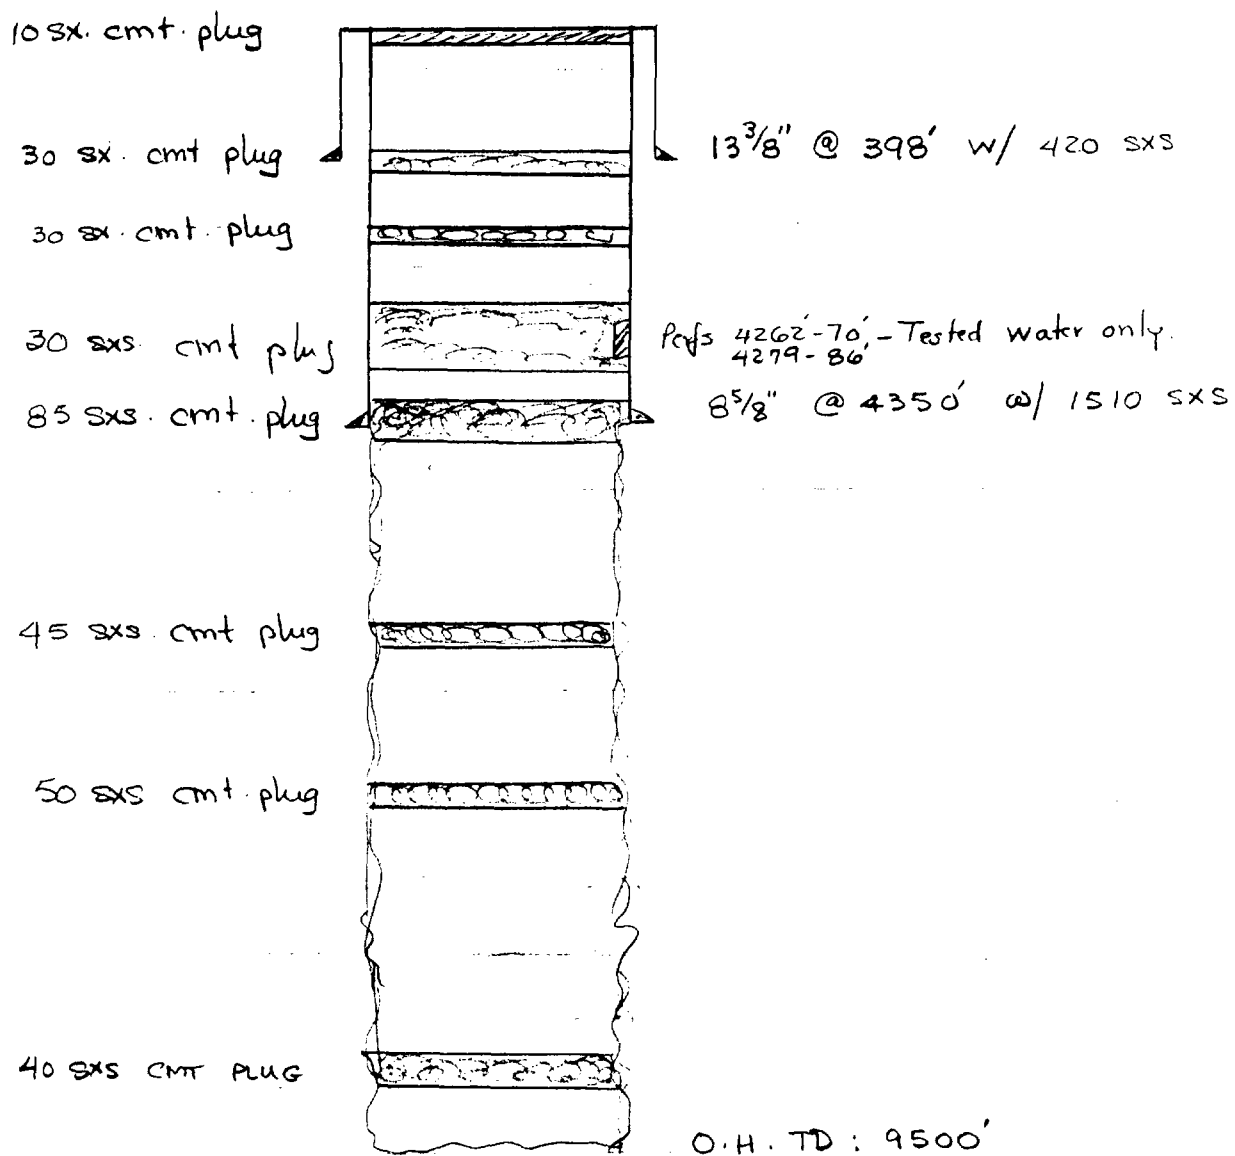 10 sx. cmt. plug
30 sx. cmt plug
13 3/8" @ 398' w/ 420 sxs
30 sx. cmt. plug
30 sxs. cmt plug
Perfs 4262'-70', - Tested water only.
4279-86'
85 sxs. cmt. plug
8 5/8" @ 4350' w/ 1510 sxs
45 sxs. cmt plug
50 sxs cmt. plug
40 sxs CMT PLUG
O.H. TD: 9500'